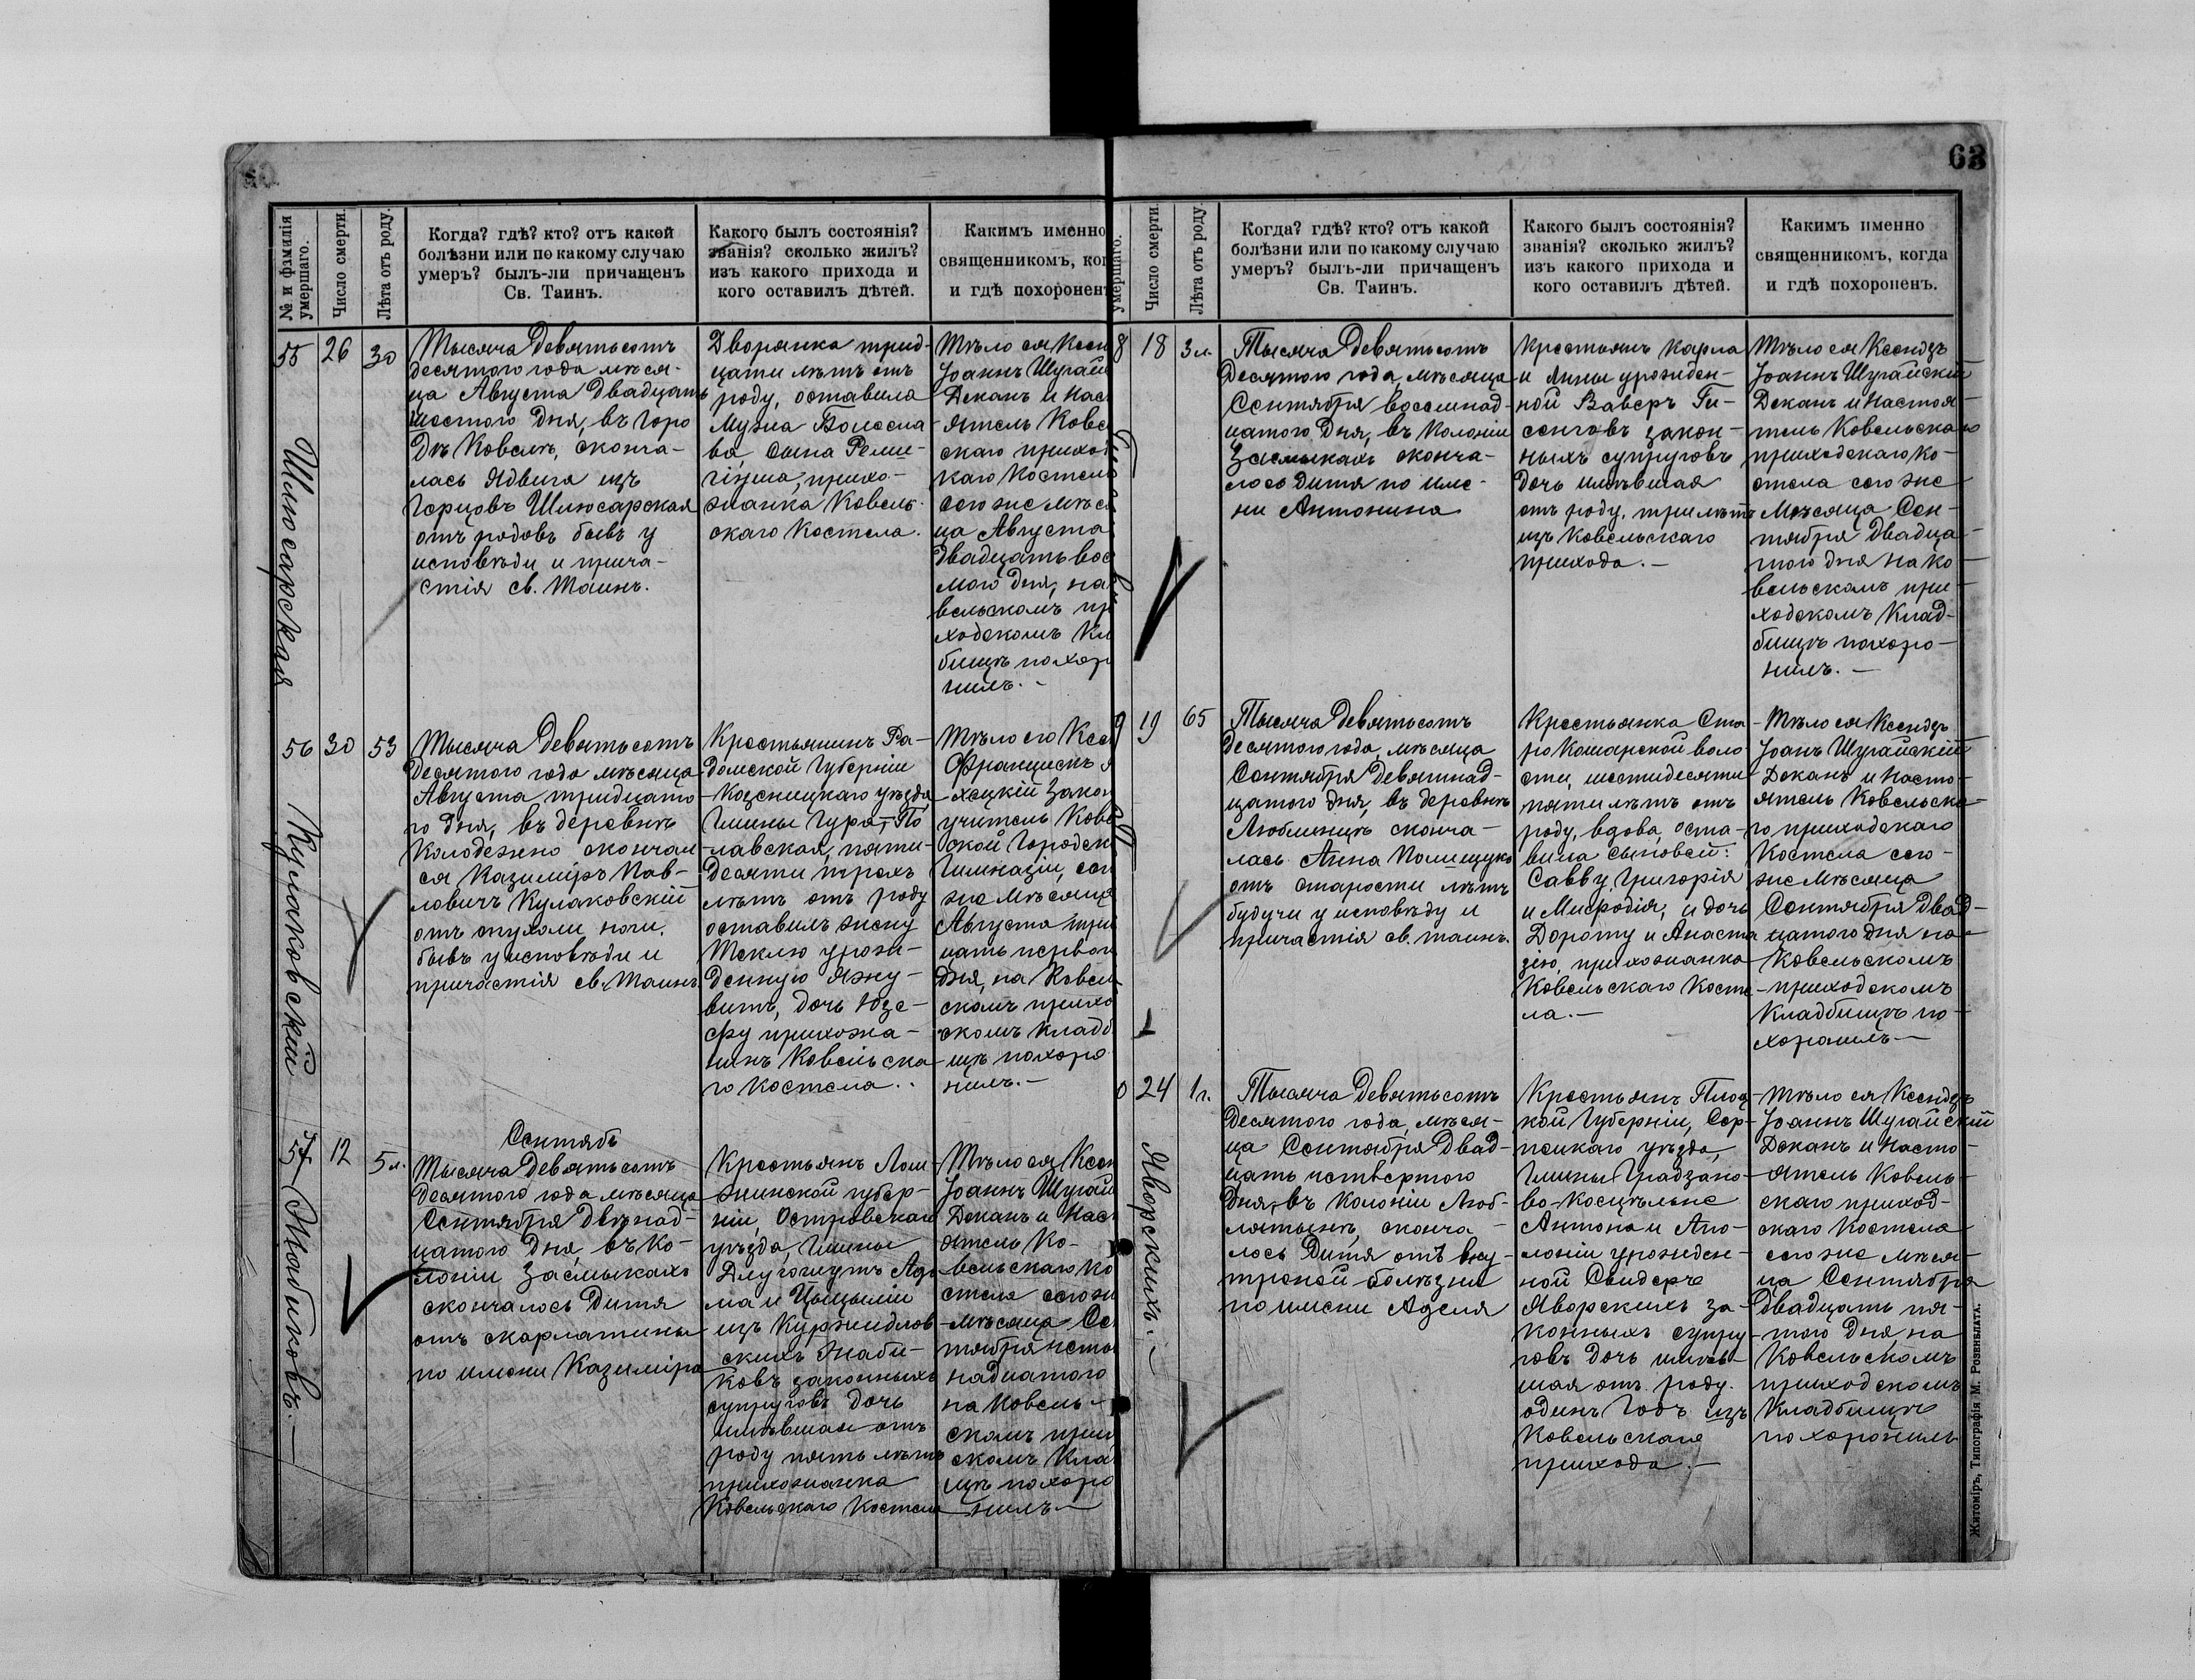 63
№ и фамилія умершаго.
Число смерти.
Лѣта отъ роду.
Когда? гдѣ? кто? отъ какой
болѣзни или по какому случаю
умеръ? былъ-ли причащенъ
Св. Таинъ.
Какого былъ состоянія?
званія? сколько жилъ?
изъ какого прихода и
кого оставилъ дѣтей.
Какимъ именно
священникомъ, ког
и гдѣ похоронен
55
Шлюсарская
26
30
Тысяча девятьсотъ
десятого года мѣся-
ца Августа двадцать
шестого дня, въ горо
дѣ Ковелѣ, сконча-
лась Ядвига изъ
Герцовъ Шлюсарская
отъ родовъ бывъ у
исповѣди и прича-
стія св. Таинъ.
Дворянка трид-
цати лѣтъ отъ
роду, оставила
мужа Болесла
ва сына Реми-
гіуша, прихо-
жанка Ковель-
скаго Костела.
Тѣло ея Ксен
Іоаннъ Шугай
Деканъ и Нас
ятель Кове
скаго приход
каго Костела
сего же мѣся
ца Августа
двадцать вос
мого дня, на
вельскомъ пр
ходскомъ Кл
бищѣ похор
нилъ. -
56
Кулаковскій
30
53
Тысяча девятьсотъ
десятого года мѣсяца
Августа тридцато
го дня, въ деревнѣ
Колодежно скончал
ся Казиміръ Пав-
ловичъ Кулаковскій
отъ опухоли ноги,
бывъ у исповѣди и
причастія св. Таинъ.
Крестьянинъ Ра-
домской Губерніи
Козеницкаго уѣзда
Гмины Гура-Пу
лавская, пяти-
десяти трехъ
лѣтъ отъ роду
оставилъ жену
Теклю урож-
денную Яжу-
витъ, дочь Юзе-
фу прихожа-
нинъ Ковельска
го Костела..
Тѣло его Ксен
Францискъ
хецкій Закон
учитель Кове
ской Городск
Гимназіи, сег
же мѣсяца
Августа три
цать первог
дня, на Ковел
скомъ прихо
скомъ кладб
щѣ похоро
нилъ. -
Сентябь
57
Жабиковъ. -
12
5 л.
Тысяча девятьсотъ
десятого года мѣсяца
Сентября двѣнад-
цатого дня, въ Ко-
лоніи Засмыкахъ
скончалось дитя
отъ скарлатины
по имени Казиміра
Крестьянъ Лом-
жинской губер-
ніи, Островскаго
уѣзда, Гмины
Длугоги Адa-
ма и Цыцыліи
изъ Куржидлов
скихъ Жаби-
ковъ законныхъ
супруговъ дочь
имѣвшая отъ
роду пять лѣтъ
прихожанка
Ковельскаго Костела
Тѣло ея Ксен
Іоаннъ Шугай
Деканъ и Нас
ятель Ко-
вельскаго Ко
стела сего же
мѣсяца Се
тября четы
надцатого
на Ковель-
скомъ прих
скомъ Кла
щѣ похоро
нилъ -
умершаго.
Число смерти.
Лѣта отъ роду.
Когда? гдѣ? кто? отъ какой
болѣзни или по какому случаю
умеръ? былъ-ли причащенъ
Св. Таинъ.
Какого былъ состоянія?
званія? сколько жилъ?
изъ какого прихода и
кого оставилъ дѣтей.
Какимъ именно
священникомъ, когда
и гдѣ похороненъ.
8
18
3 л.
Тысяча девятьсотъ
десятого года, мѣсяца
Сентября восемнад-
цатого дня, въ Колоніи
Засмыкахъ сконча-
лось дитя по име-
ни Антонина
Крестьянъ Карла
и Анны урожден-
ной Ваверъ Ги-
сенговъ закон-
ныхъ супруговъ
дочь имѣвшая
отъ роду, три лѣтъ
изъ Ковельскаго
прихода. -
Тѣло ея Ксендзъ
Іоаннъ Шугайскій
Деканъ и Настоя-
тель Ковельскаго
приходскаго Ко-
стела сего же
Мѣсяца Сен-
тября двадца-
того дня на Ко-
вельскомъ при-
ходскомъ Клад-
бищѣ похоро-
нилъ. -
9
19
65
Тысяча девятьсотъ
десятого года, мѣсяца
Сентября девятнад-
цатого дня, въ деревнѣ
Люблинцѣ сконча-
лась Анна Полещукъ
отъ старости лѣтъ
будучи у исповѣду и
причастія св. таинъ.
Крестьянка Ста
ро Кошарской воло-
сти, шестидесяти
пяти лѣтъ отъ
роду, вдова, оста-
вила сыновей:
Савву, Григорія
и Мефодія, и дочь
Дороту и Анаста
зею, прихожанка
Ковельскаго Косте-
ла. -
Тѣло ея Ксендзъ
Іоанъ Шугайскій
Деканъ и Насто-
ятель Ковельска-
го приходскаго
Костела сего-
же Мѣсяца
Сентября Двад-
цатого дня на
Ковельскомъ
приходскомъ
Кладбищѣ по-
хоронилъ -
0
Яворскихъ. -
24
1 г.
Тысяча девятьсотъ
десятого года, мѣся-
ца Сентября двад-
цать четвертого
дня, въ Колоніи Люб-
лятынѣ, сконча-
лось дитя отъ вну-
треной болѣзни
по имени Аделя
Крестьянъ Плоц
кой Губерніи, Сер-
пецкаго уѣзда,
Гмины Градзано-
во-Косцѣльне
Антона и Апо-
лоніи урожден-
ной Свидеръ
Яворскихъ за-
конныхъ супру-
говъ дочь имѣв-
шая отъ роду.
одинъ годъ изъ
Ковельская
прихода. -
Тѣло ея Ксендзъ
Іоаннъ Шугайскій
Деканъ и Насто-
ятель Ковель-
скаго приход-
скаго Костела
сего же мѣся-
ца Сентября
двадцать пя-
того дня, на
Ковельскомъ
приходскомъ
Кладбищѣ
похоронилъ
Житоміръ, Типографія М. Розенблатъ.